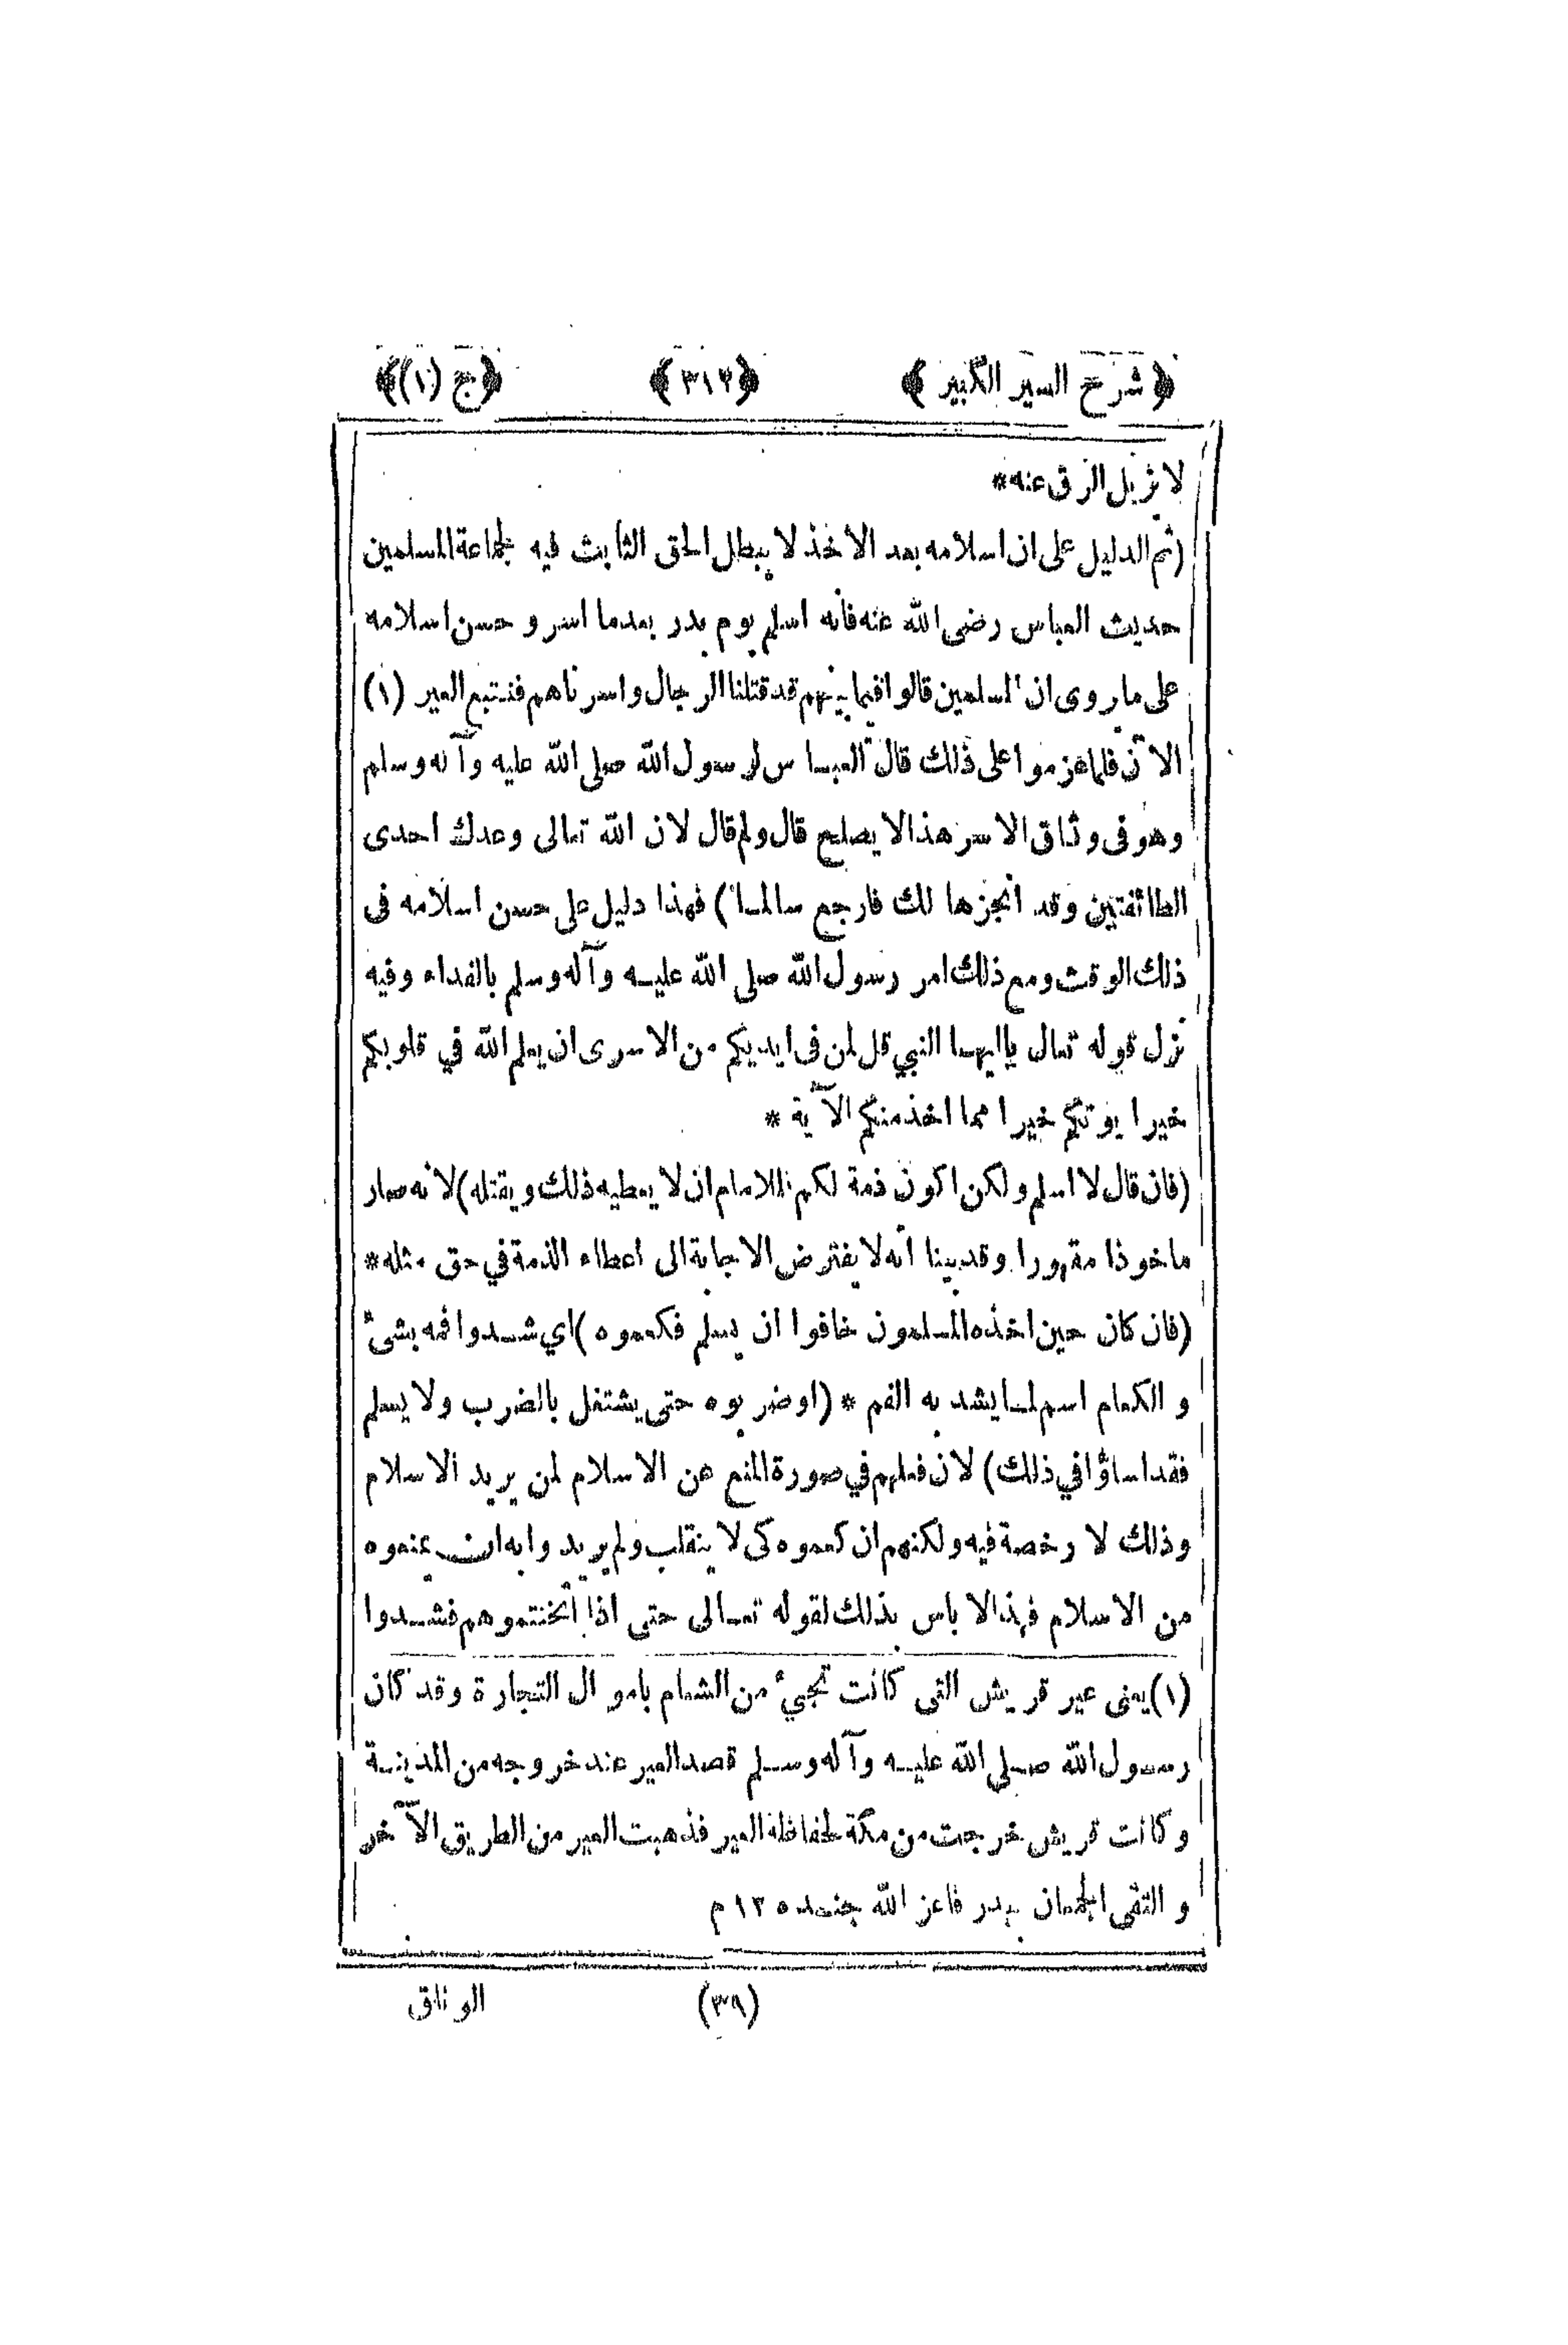 ﴿ شرح السير الكبير ﴾ ﴿٣١٣﴾ ﴿ج (١)﴾
لا يزيل الرق عنه*
(ثم الدليل على ان اسلامه بعد الاخذ لا يبطل الحق الثابت فيه لجماعة المسلمين
حديث العباس رضى الله عنه فانه اسلم يوم بدر بعد ما اسر و حسن اسلامه
على ما روى ان المسلمين قالوا فيما بينهم قد قتلنا الرجال واسرناهم فنتبع العير (١)
الآن فلما عزموا على ذلك قال العباس لرسول الله صلى الله عليه وآله وسلم
وهو فى وثاق الاسر هذا لا يصلح قال ولم قال لان الله تعالى وعدك احدى
الطائفتين وقد انجزها لك فارجع سالما) فهذا دليل على حسن اسلامه فى
ذلك الوقت ومع ذلك امر رسول الله صلى الله عليه وآله وسلم بالفداء وفيه
نزل قوله تعالى ياايها النبي قل لمن فى ايديكم من الاسرى ان يعلم الله في قلوبكم
خيرا يوتكم خيرا مما اخذ منكم الآية *
(فان قال لا اسلم ولكن اكون ذمة لكم فللامام ان لا يعطيه ذلك ويقتله) لانه صار
ماخوذا مقهورا وقد بينا انه لا يفترض الاجابة الى اعطاء الذمة في حق مثله*
(فان كان حين اخذه المسلمون خافوا ان يسلم فكعموه) اي شدوا فمه بشئ
و الكعام اسم لما يشد به الفم * (او ضربوه حتى يشتغل بالضرب ولا يسلم
فقد اساؤا في ذلك) لان فعلهم في صورة المنع عن الاسلام لمن يريد الاسلام
وذلك لا رخصة فيه ولكنهم ان كعموه كى لا ينقلب ولم يريدوا به ان يمنعوه
من الاسلام فهذا لا باس بذلك لقوله تعالى حتى اذا اثخنتموهم فشدوا
(١) يعنى عير قريش التى كانت تجيئ من الشام باموال التجارة وقد كان
رسول الله صلى الله عليه وآله وسلم قصد العير عند خروجه من المدينة
وكانت قريش خرجت من مكة لمحافظة العير فذهبت العير من الطريق الآخر
و التقى الجمعان ببدر فاعز الله جنده ١٢ م
(٣٩) الوثاق